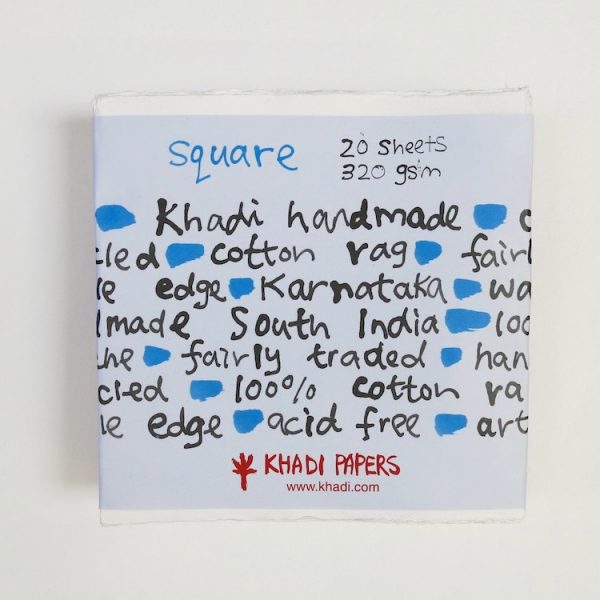 square
20 sheets
320 gsm
Khadi handmade c
cled cotton rag fairl
le edge Karnataka wa
dmade South India 100
ne fairly traded han
cled 100% cotton ra
le edge acid free art
KHADI PAPERS
www.khadi.com